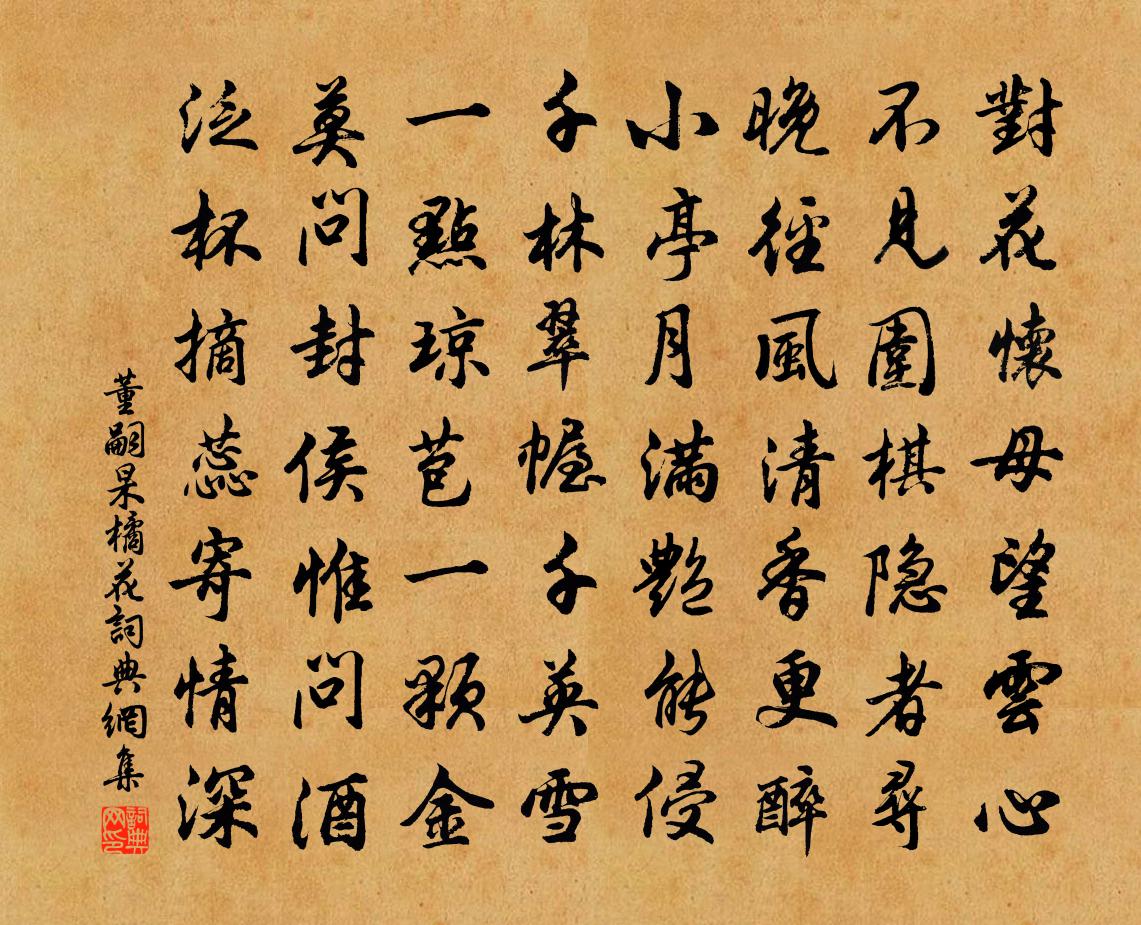 對花懷母望雲心
不見圍棋隐者尋
晚徑風清香更醉
小亭月滿艶能侵
千林翠幄千英雪
一點琼苞一顆金
莫問封侯惟問酒
泛杯摘蕊寄情深
董嗣杲橘花詞典網集
詞典網印